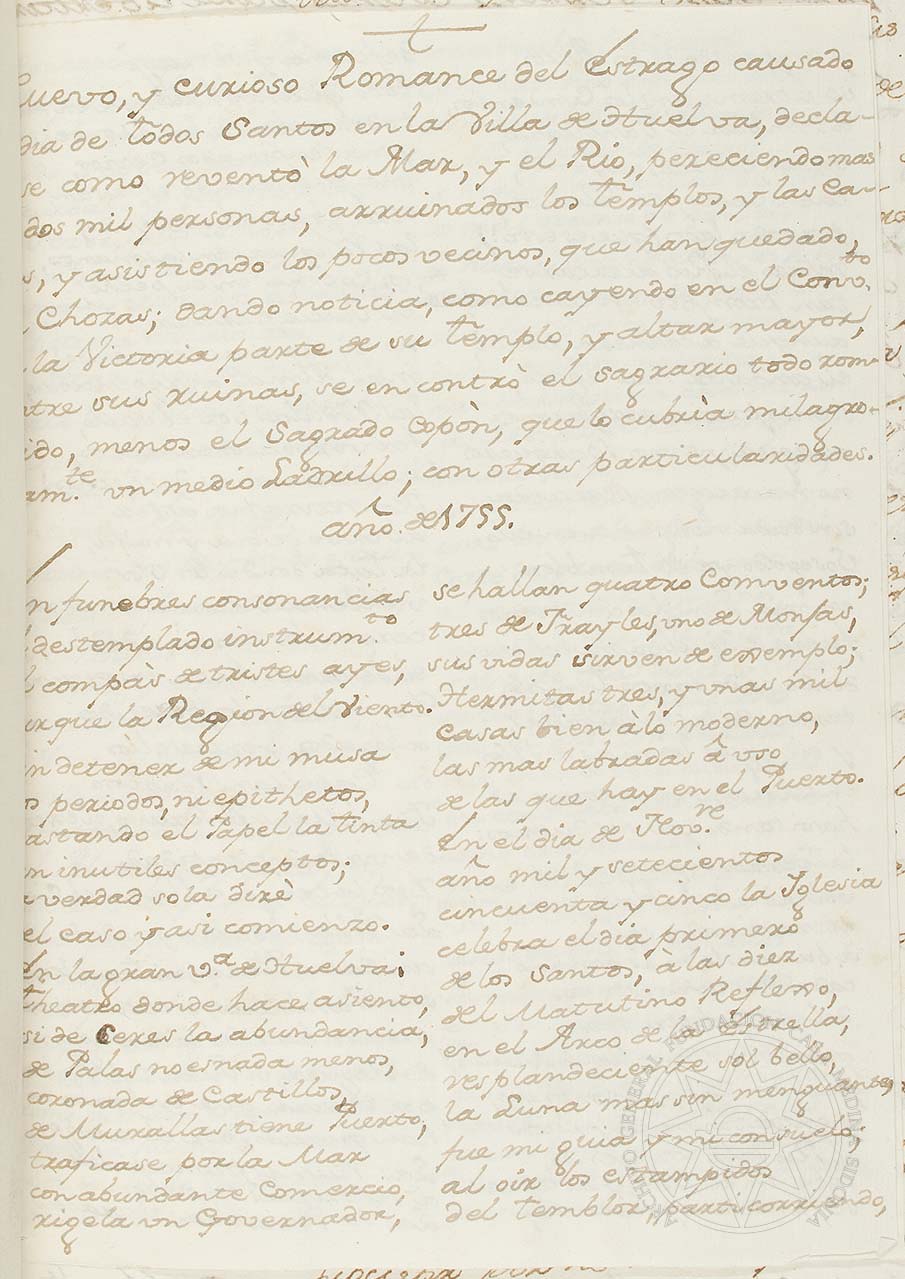 uevo, y curioso Romance del Estrago causado
dia de todos Santos en la Villa de Huelva, decla-
se como reventò la Mar, y el Rio, pereciendo mas
dos mil personas, arruinados los templos, y las Ca-
s, y asistiendo los pocos vecinos, que han quedado,
Chozas; dando noticia, como cayendo en el Conv.to
la Victoria parte de su templo, y altar mayor,
ntre sus ruinas, se encontrò el Sagrario todo rom-
ido, menos el Sagrado Copòn, que lo cubrìa milagro-
am.te un medio Ladrillo; con otras particularidades.
año de 1755.
n funebres consonancias
destemplado instrum.to
compàs de tristes ayes,
urque la Region del Viento.
in detener de mi musa
os periodos, ni epithetos,
astando el Papel la tinta
n inutiles conceptos;
verdad sola dirè
el caso y asi comienzo.
En la gran V.a de Huelva:
theatro donde hace asiento,
si de Ceres la abundancia,
de Palas no es nada menos,
coronada de Castillos,
de Murallas tiene Puerto,
traficase por la Mar
con abundante Comercio,
rigela un Governador,
se hallan quatro Comventos;
tres de Frayles, uno de Monjas,
sus vidas sirven de exemplo;
Hermitas tres, y unas mil
casas bien à lo moderno,
las mas labradas â uso
de las que hay en el Puerto.
En el dia de Nov.re
año mil y setecientos
cincuenta y cinco la Iglesia
celebra el dia primero
de los Santos, à las diez
del Matutino Reflexo,
en el Arco de la Estrella,
resplandeciente sol bello,
la Luna mas sin menguante,
fue mi guia y mi consuelo;
al oìr los estampidos
del temblor, partì corriendo,
ARCHIVO GENERAL FUNDACION CASA MEDINA SIDONIA